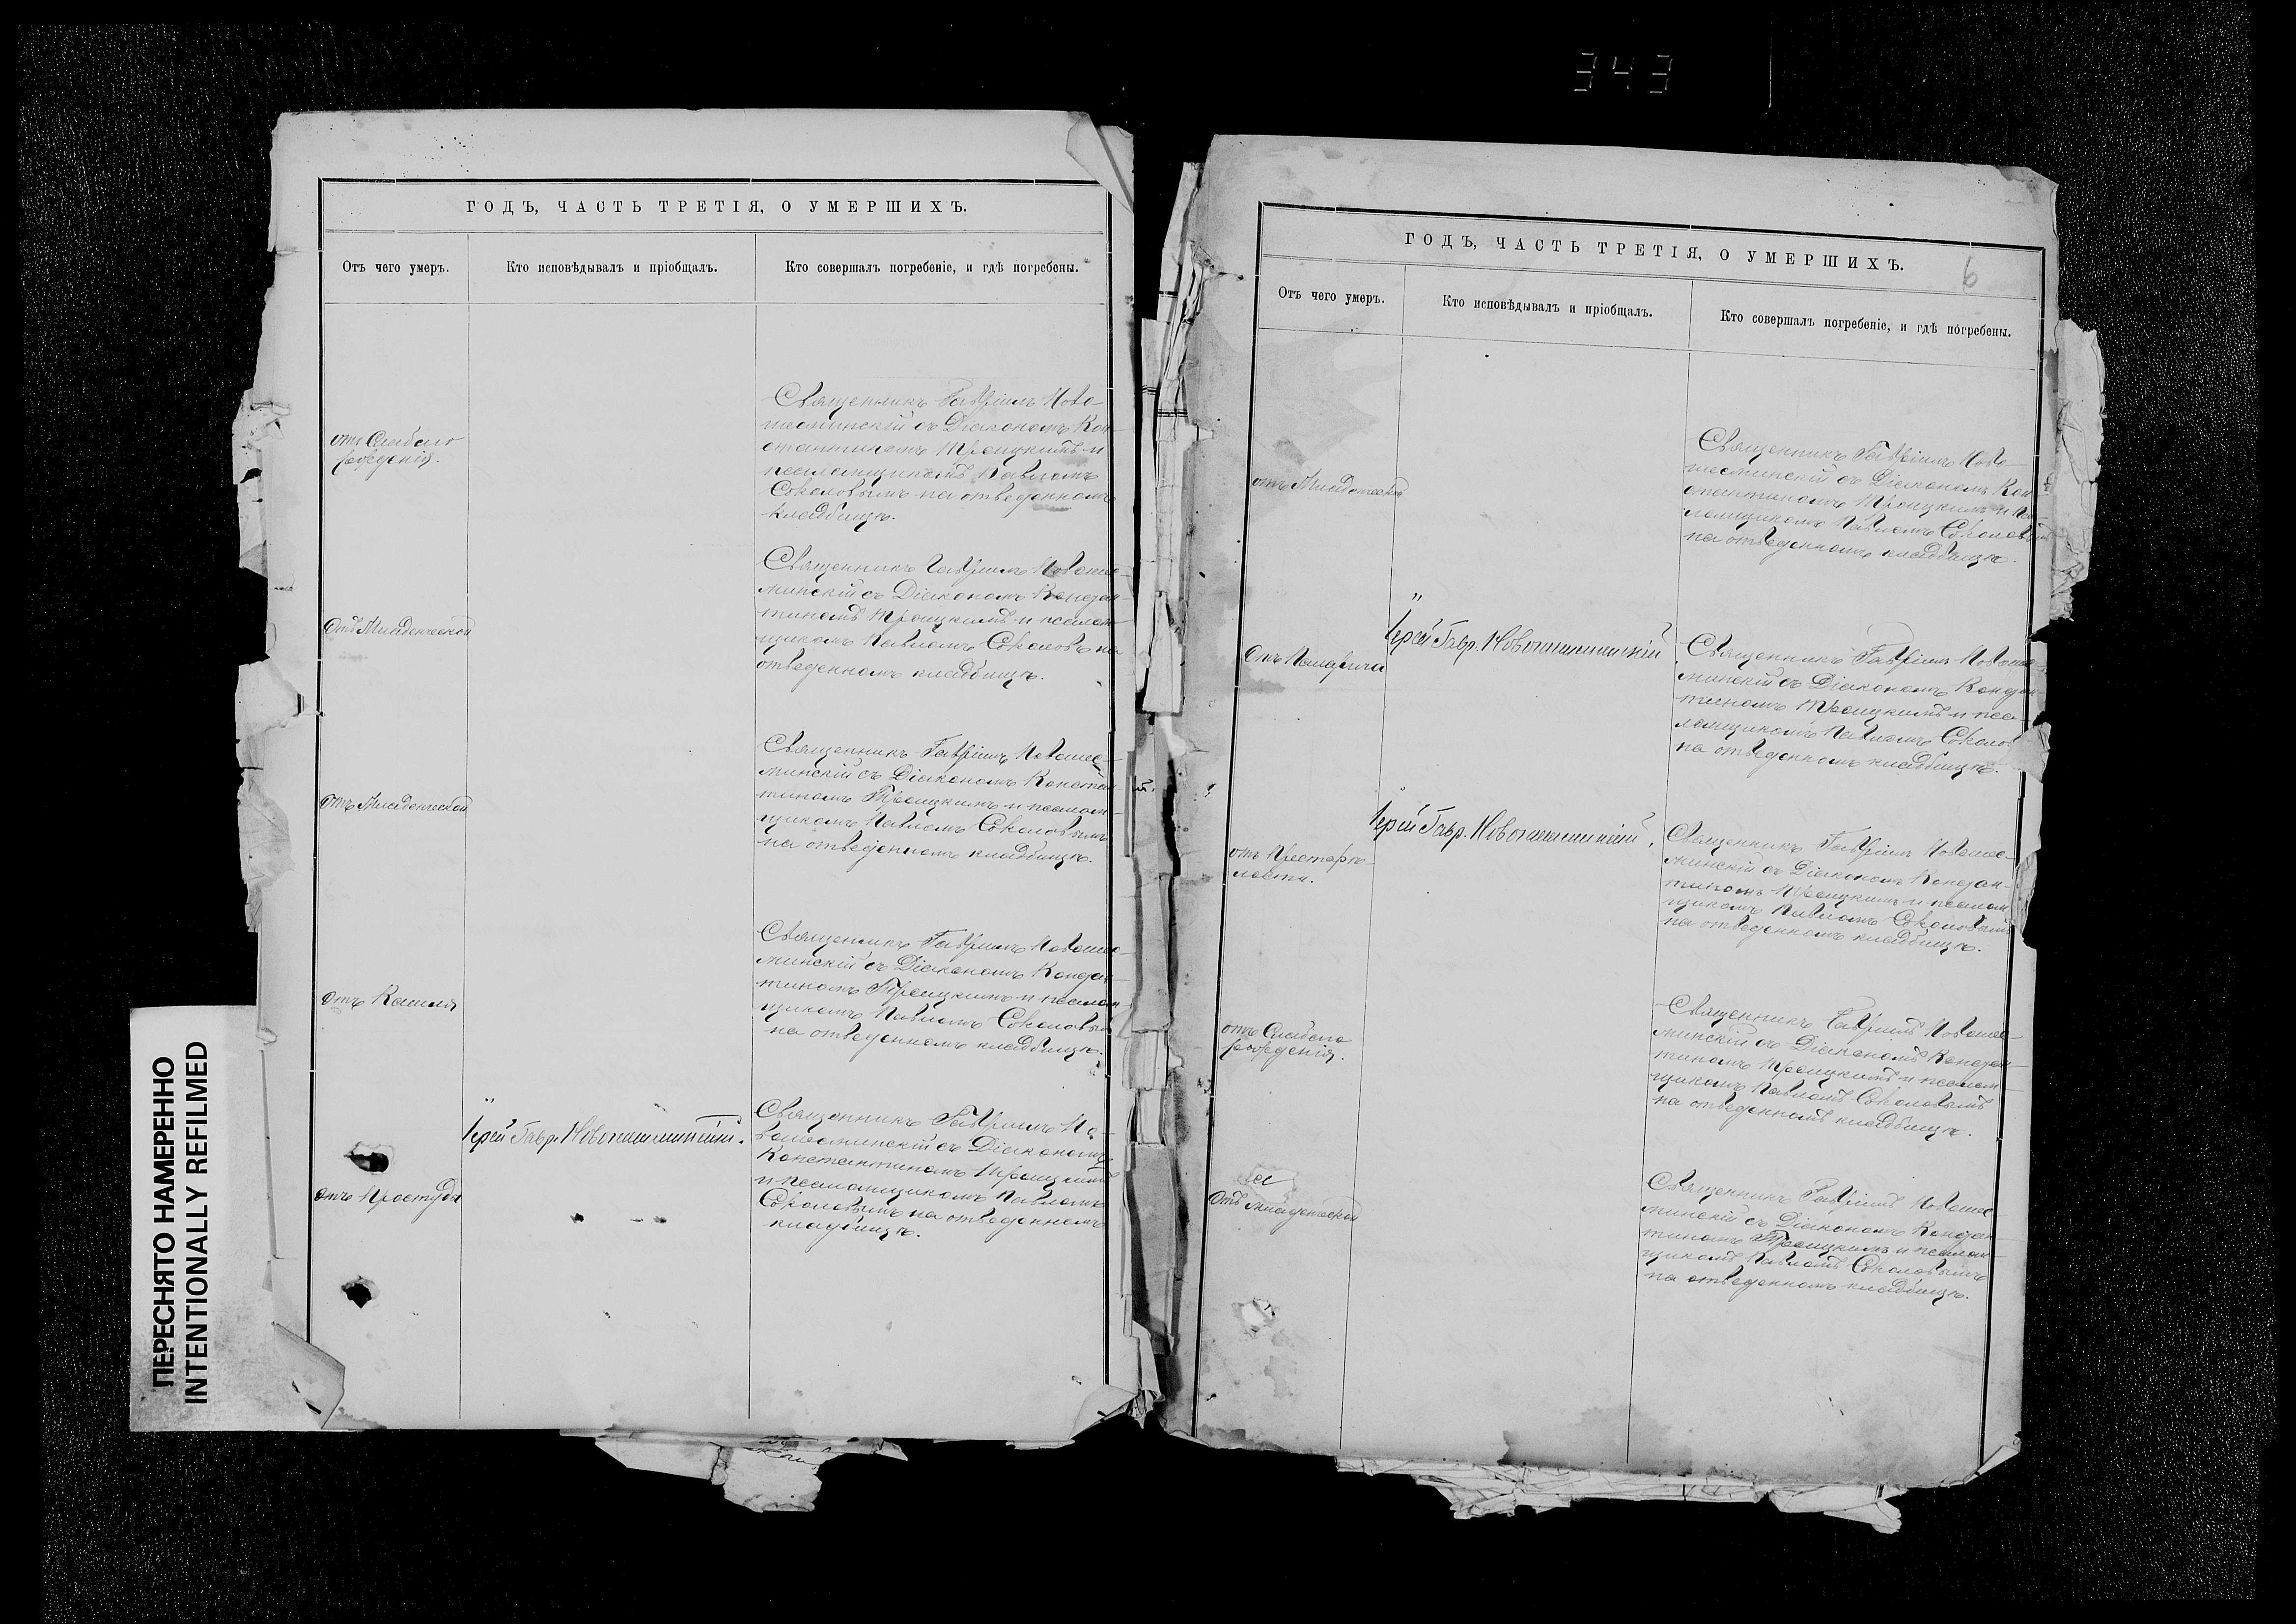 343
ГОДЪ, ЧАСТЬ ТРЕТІЯ, О УМЕРШИХЪ.
Отъ чего умеръ.
Кто исповѣдывалъ и пріобщалъ.
Кто совершалъ погребеніе, и гдѣ погребены.
отъ Слабаго
рожденія.
Священникъ Гавріилъ Ново-
шешминскій съ Діакономъ Кон-
стантиномъ Троицкимъ и
псаломщикомъ Павломъ
Соколовымъ на отведенномъ
кладбищѣ.
Отъ Младенческой
Священникъ Гавріилъ Новошеш-
минскій съ Діакономъ Констан-
тиномъ Троицкимъ и псалом-
щикомъ Павломъ Соколовъ на
отведенномъ кладбищѣ.
отъ Младенческой
Священникъ Гавріилъ Новошеш-
минскій съ Діакономъ Констан-
тиномъ Троицкимъ и псалом-
щикомъ Павломъ Соколовымъ
на отведенномъ кладбищѣ.
отъ Кашля
Священникъ Гавріилъ Новошеш-
минскій съ Діакономъ Констан-
тиномъ Троицкимъ и псалом-
щикомъ Павломъ Соколовым
на отведенномъ кладбищѣ.
отъ Простуды
Іерей Гавр. Новошешминскій.
Священникъ Гавріилъ Но-
вошешминскій съ Діакономъ
Константиномъ Троицкимъ
и псаломщикомъ Павломъ
Соколовымъ на отведенномъ
кладбищѣ.
ПЕРЕСНЯТО НАМЕРЕННО
INTENTIONALLY REFILMED
ГОДЪ, ЧАСТЬ ТРЕТІЯ, О УМЕРШИХЪ.
6
Отъ чего умеръ.
Кто исповѣдывалъ и пріобщалъ.
Кто совершалъ погребеніе, и гдѣ погребены.
отъ Младенческой
Священникъ Гавріилъ Ново-
шешминскій съ Діакономъ Кон-
стантиномъ Троицкимъ и пса-
ломщикомъ Павломъ Соколовым
на отведенномъ кладбищѣ.
Отъ Паралича
Іерей Гавр. Новошешминскій
Священникъ Гавріилъ Новошеш-
минскій съ Діакономъ Констан-
тиномъ Троицкимъ и пса-
ломщикомъ Павломъ Соколов
на отведенномъ кладбищѣ.
отъ Престарѣ-
лости.
Іерей Гавр. Новошешминскій.
Священникъ Гавріилъ Новошеш-
минскій съ Діакономъ Констан-
тиномъ Троицкимъ и псалом
щикомъ Павломъ Соколовымъ
на отведенномъ кладбищѣ.
отъ Слабаго
рожденія.
Священникъ Гавріилъ Новошеш-
минскій съ Діакономъ Констан-
тиномъ Троицкимъ и псалом
щикомъ Павломъ Соколовымъ
на отведенномъ кладбищѣ.
Отъ Младенческой
Священникъ Гавріилъ Новошеш-
минскій съ Діакономъ Констан-
тиномъ Троицкимъ и псалом-
щикомъ Павломъ Соколовымъ
на отведенномъ кладбищѣ.